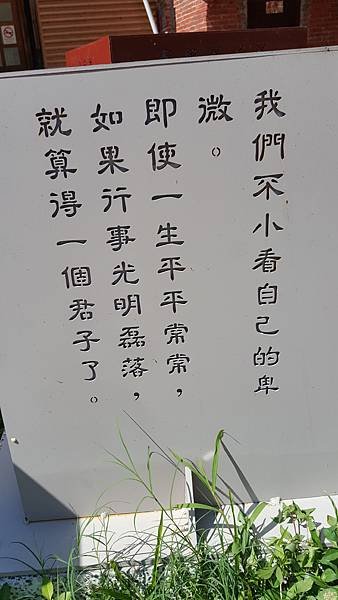 我們不小看自己的卑
微。
即使一生平平常常，
如果行事光明磊落，
就算得一個君子了。